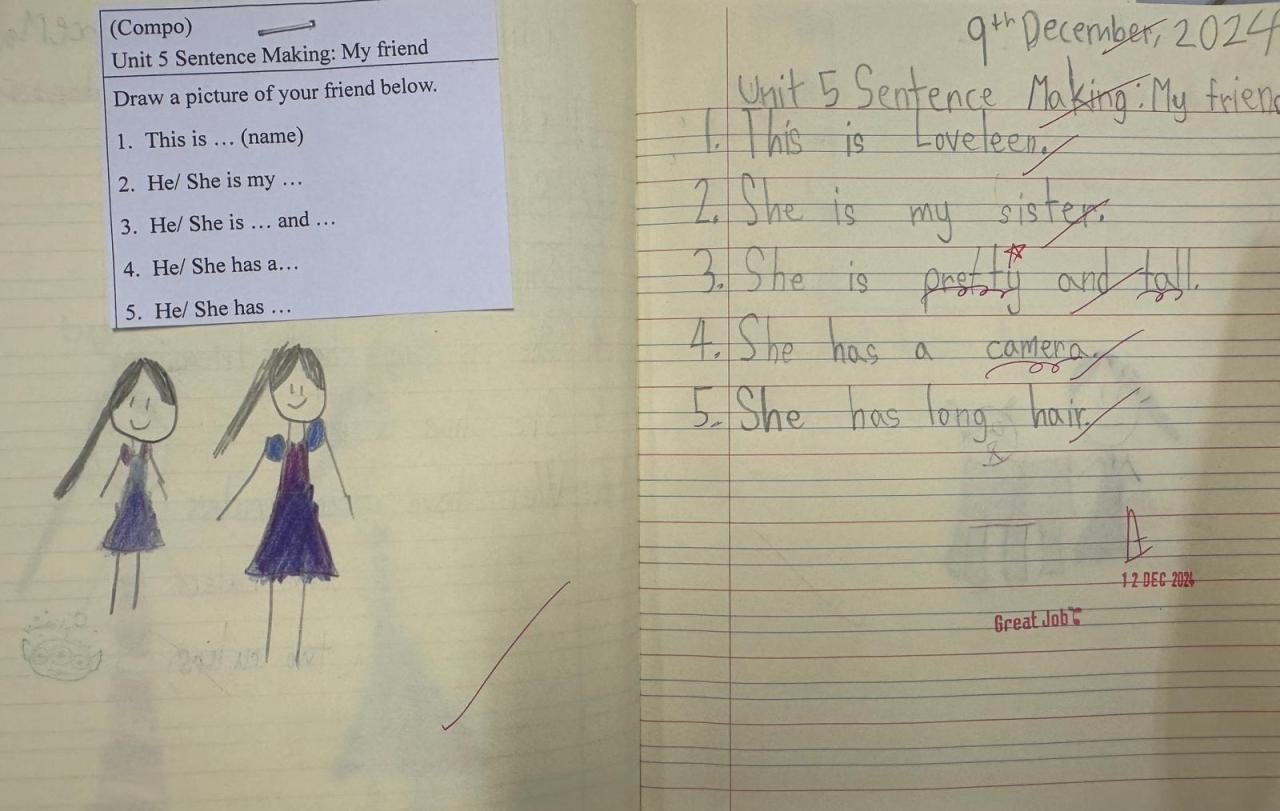 (Compo)
Unit 5 Sentence Making: My friend
Draw a picture of your friend below.
1. This is … (name)
2. He/ She is my …
3. He/ She is … and …
4. He/ She has a…
5. He/ She has …
9th December, 2024
Unit 5 Sentence Making: My frien
1. This is Loveleen.
2. She is my sister.
3. She is pretty and tall.
4. She has a camera.
5. She has long hair.
A
12 DEC 2024
Great Job